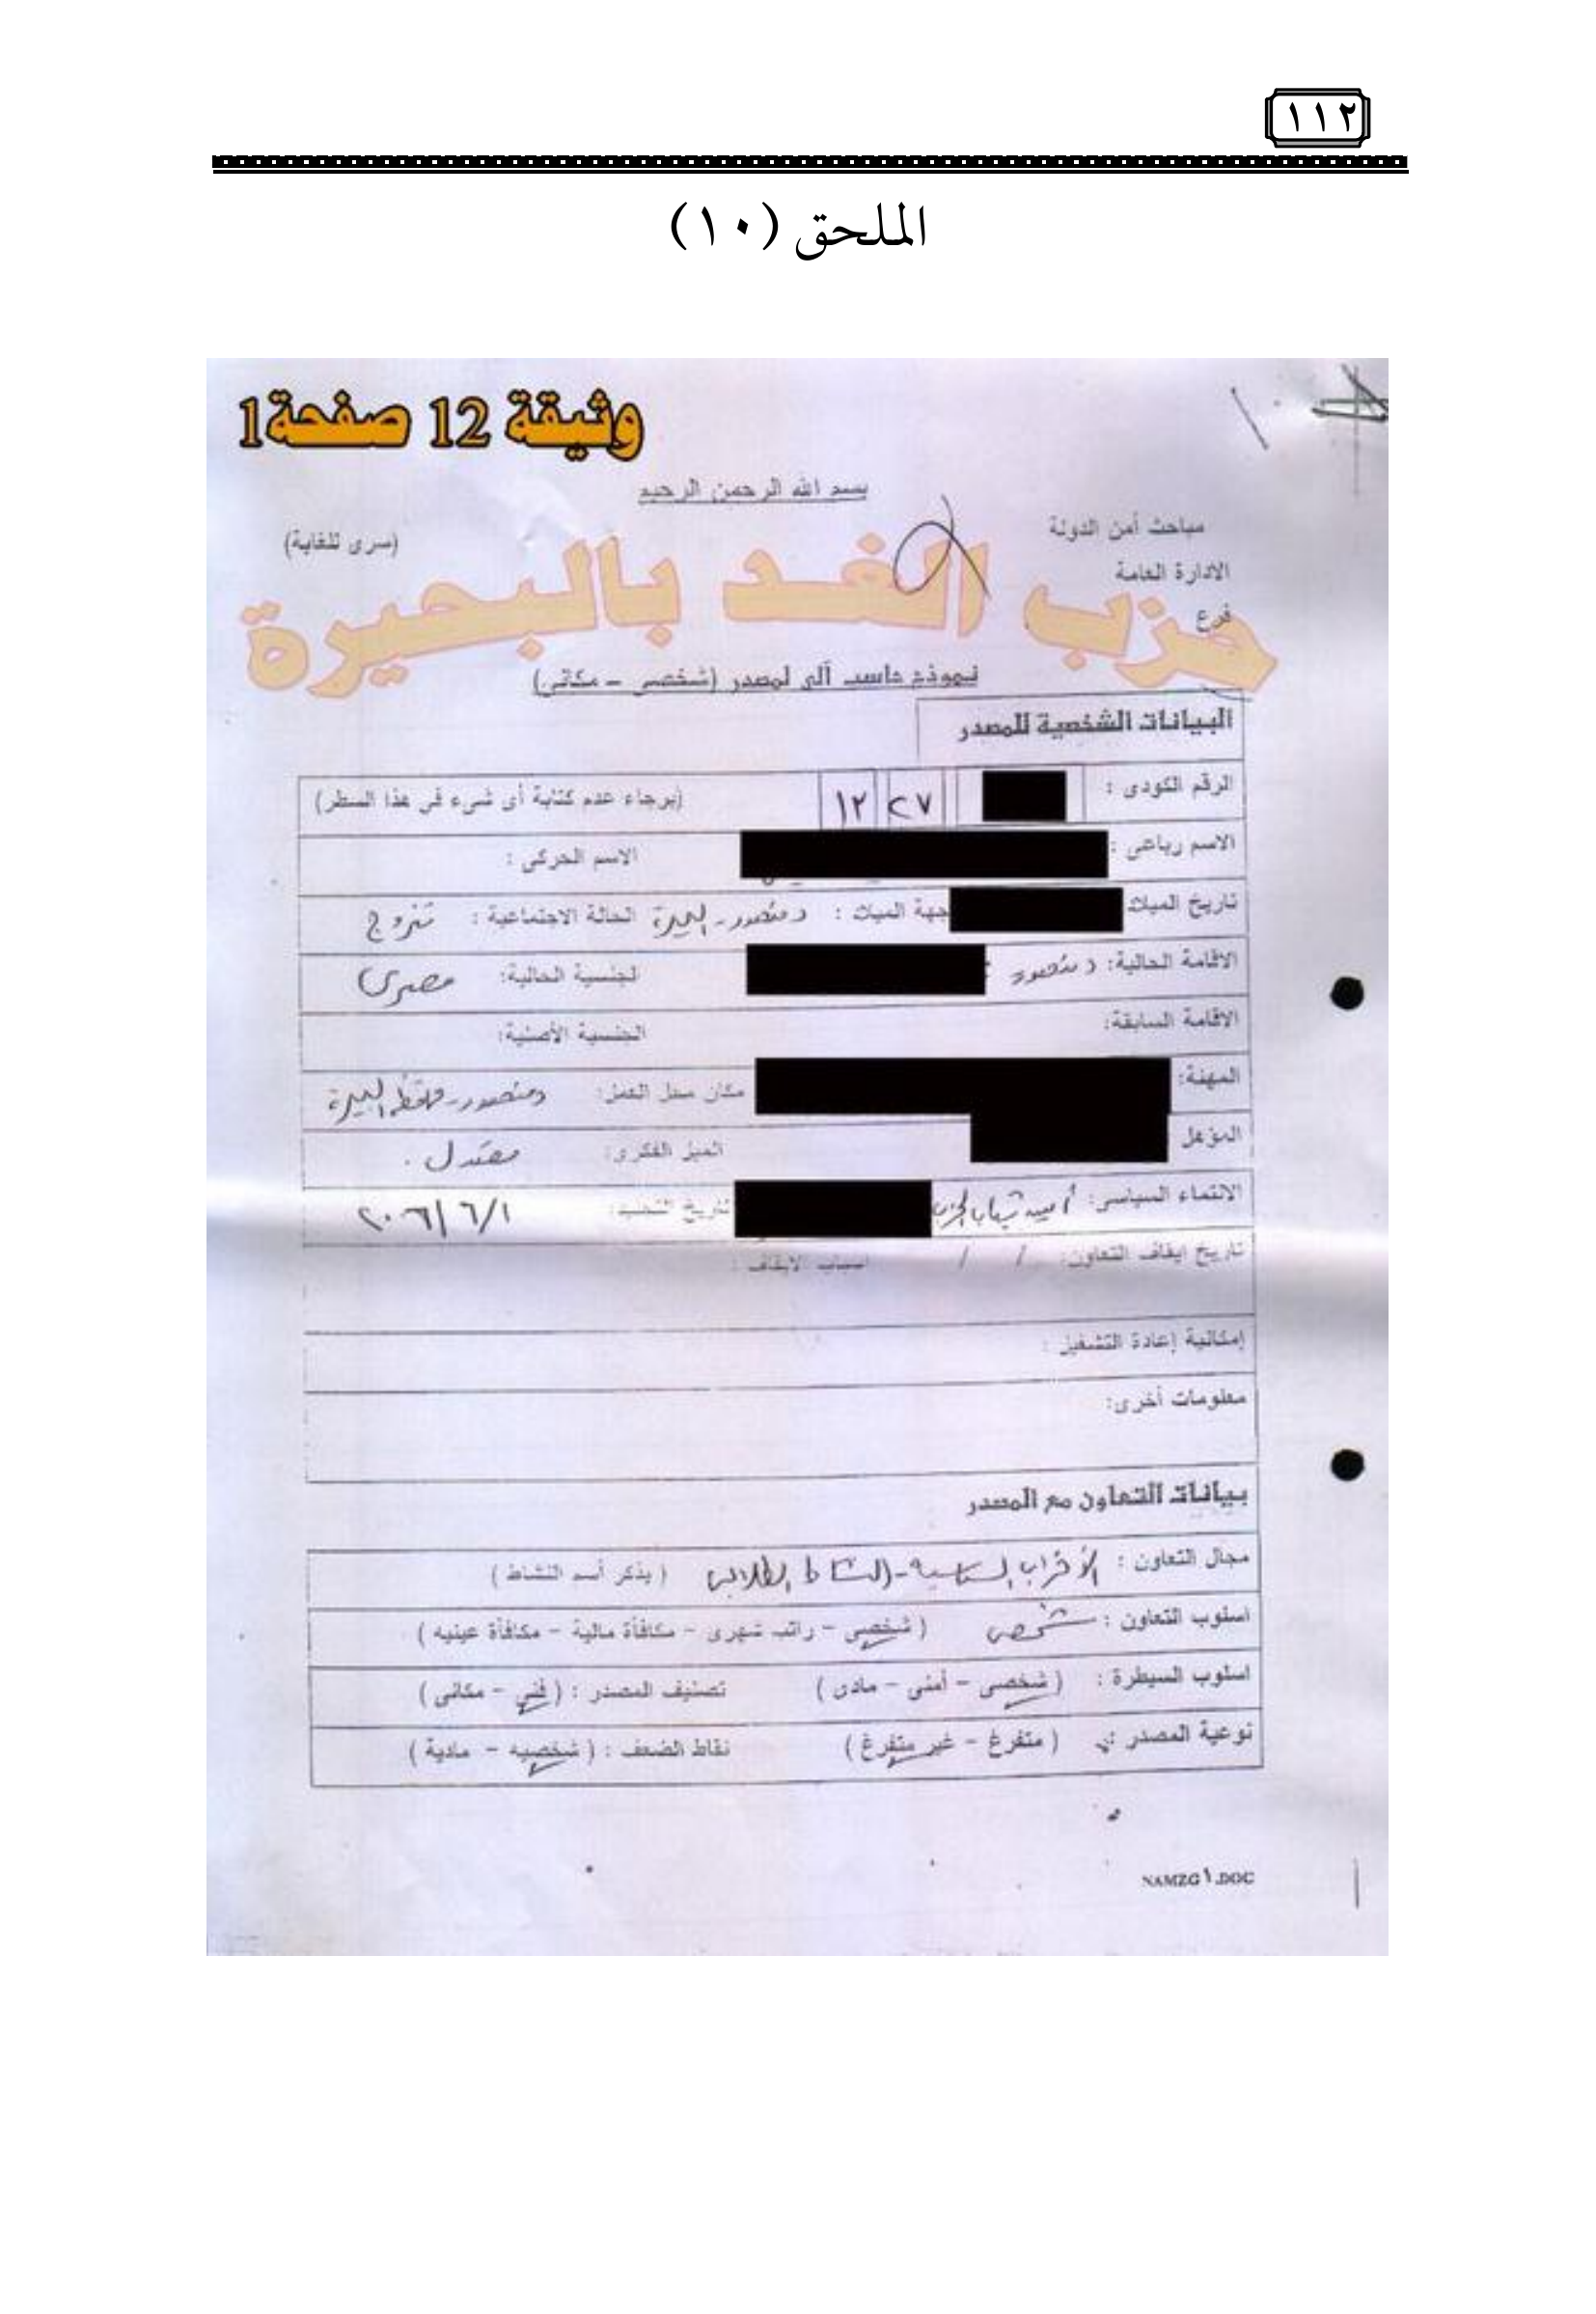 ١١٢
الملحق (١٠)
وثيقة 12 صفحة1
بسم الله الرحمن الرحيم
مباحث أمن الدولة
(سرى للغاية)
الادارة العامة
فرع
حزب الغد بالبحيرة
نموذج حاسب آلى لمصدر (شخصى – مكانى)
البيانات الشخصية للمصدر
الرقم الكودى : ٢٧ ١٢ (برجاء عدم كتابة أى شىء فى هذا السطر)
الاسم رباعى : الاسم الحركى :
تاريخ الميلاد جهة الميلاد : دمنهور - البحيرة الحالة الاجتماعية : متزوج
الاقامة الحالية: دمنهور الجنسية الحالية: مصرى
الاقامة السابقة: الجنسية الأصلية:
المهنة: مكان محل العمل: دمنهور - محافظة البحيرة
المؤهل الميل الفكرى: معتدل .
الانتماء السياسى: أمين شباب الحزب تاريخ التجنيد: ٢٠٠٦/٦/١
تاريخ ايقاف التعاون: / / اسباب الايقاف :
إمكانية إعادة التشغيل :
معلومات أخرى:
بيانات التعاون مع المصدر
مجال التعاون : الأحزاب السياسية - النشاط الطلابى ( يذكر أسم النشاط )
اسلوب التعاون : شخصى ( شخصى – راتب شهرى – مكافأة مالية – مكافأة عينيه )
اسلوب السيطرة : ( شخصى – أمنى – مادى ) تصنيف المصدر : ( فني – مكانى )
نوعية المصدر : ( متفرغ – غير متفرغ ) نقاط الضعف : ( شخصيه – مادية )
NAMZG١.DOC